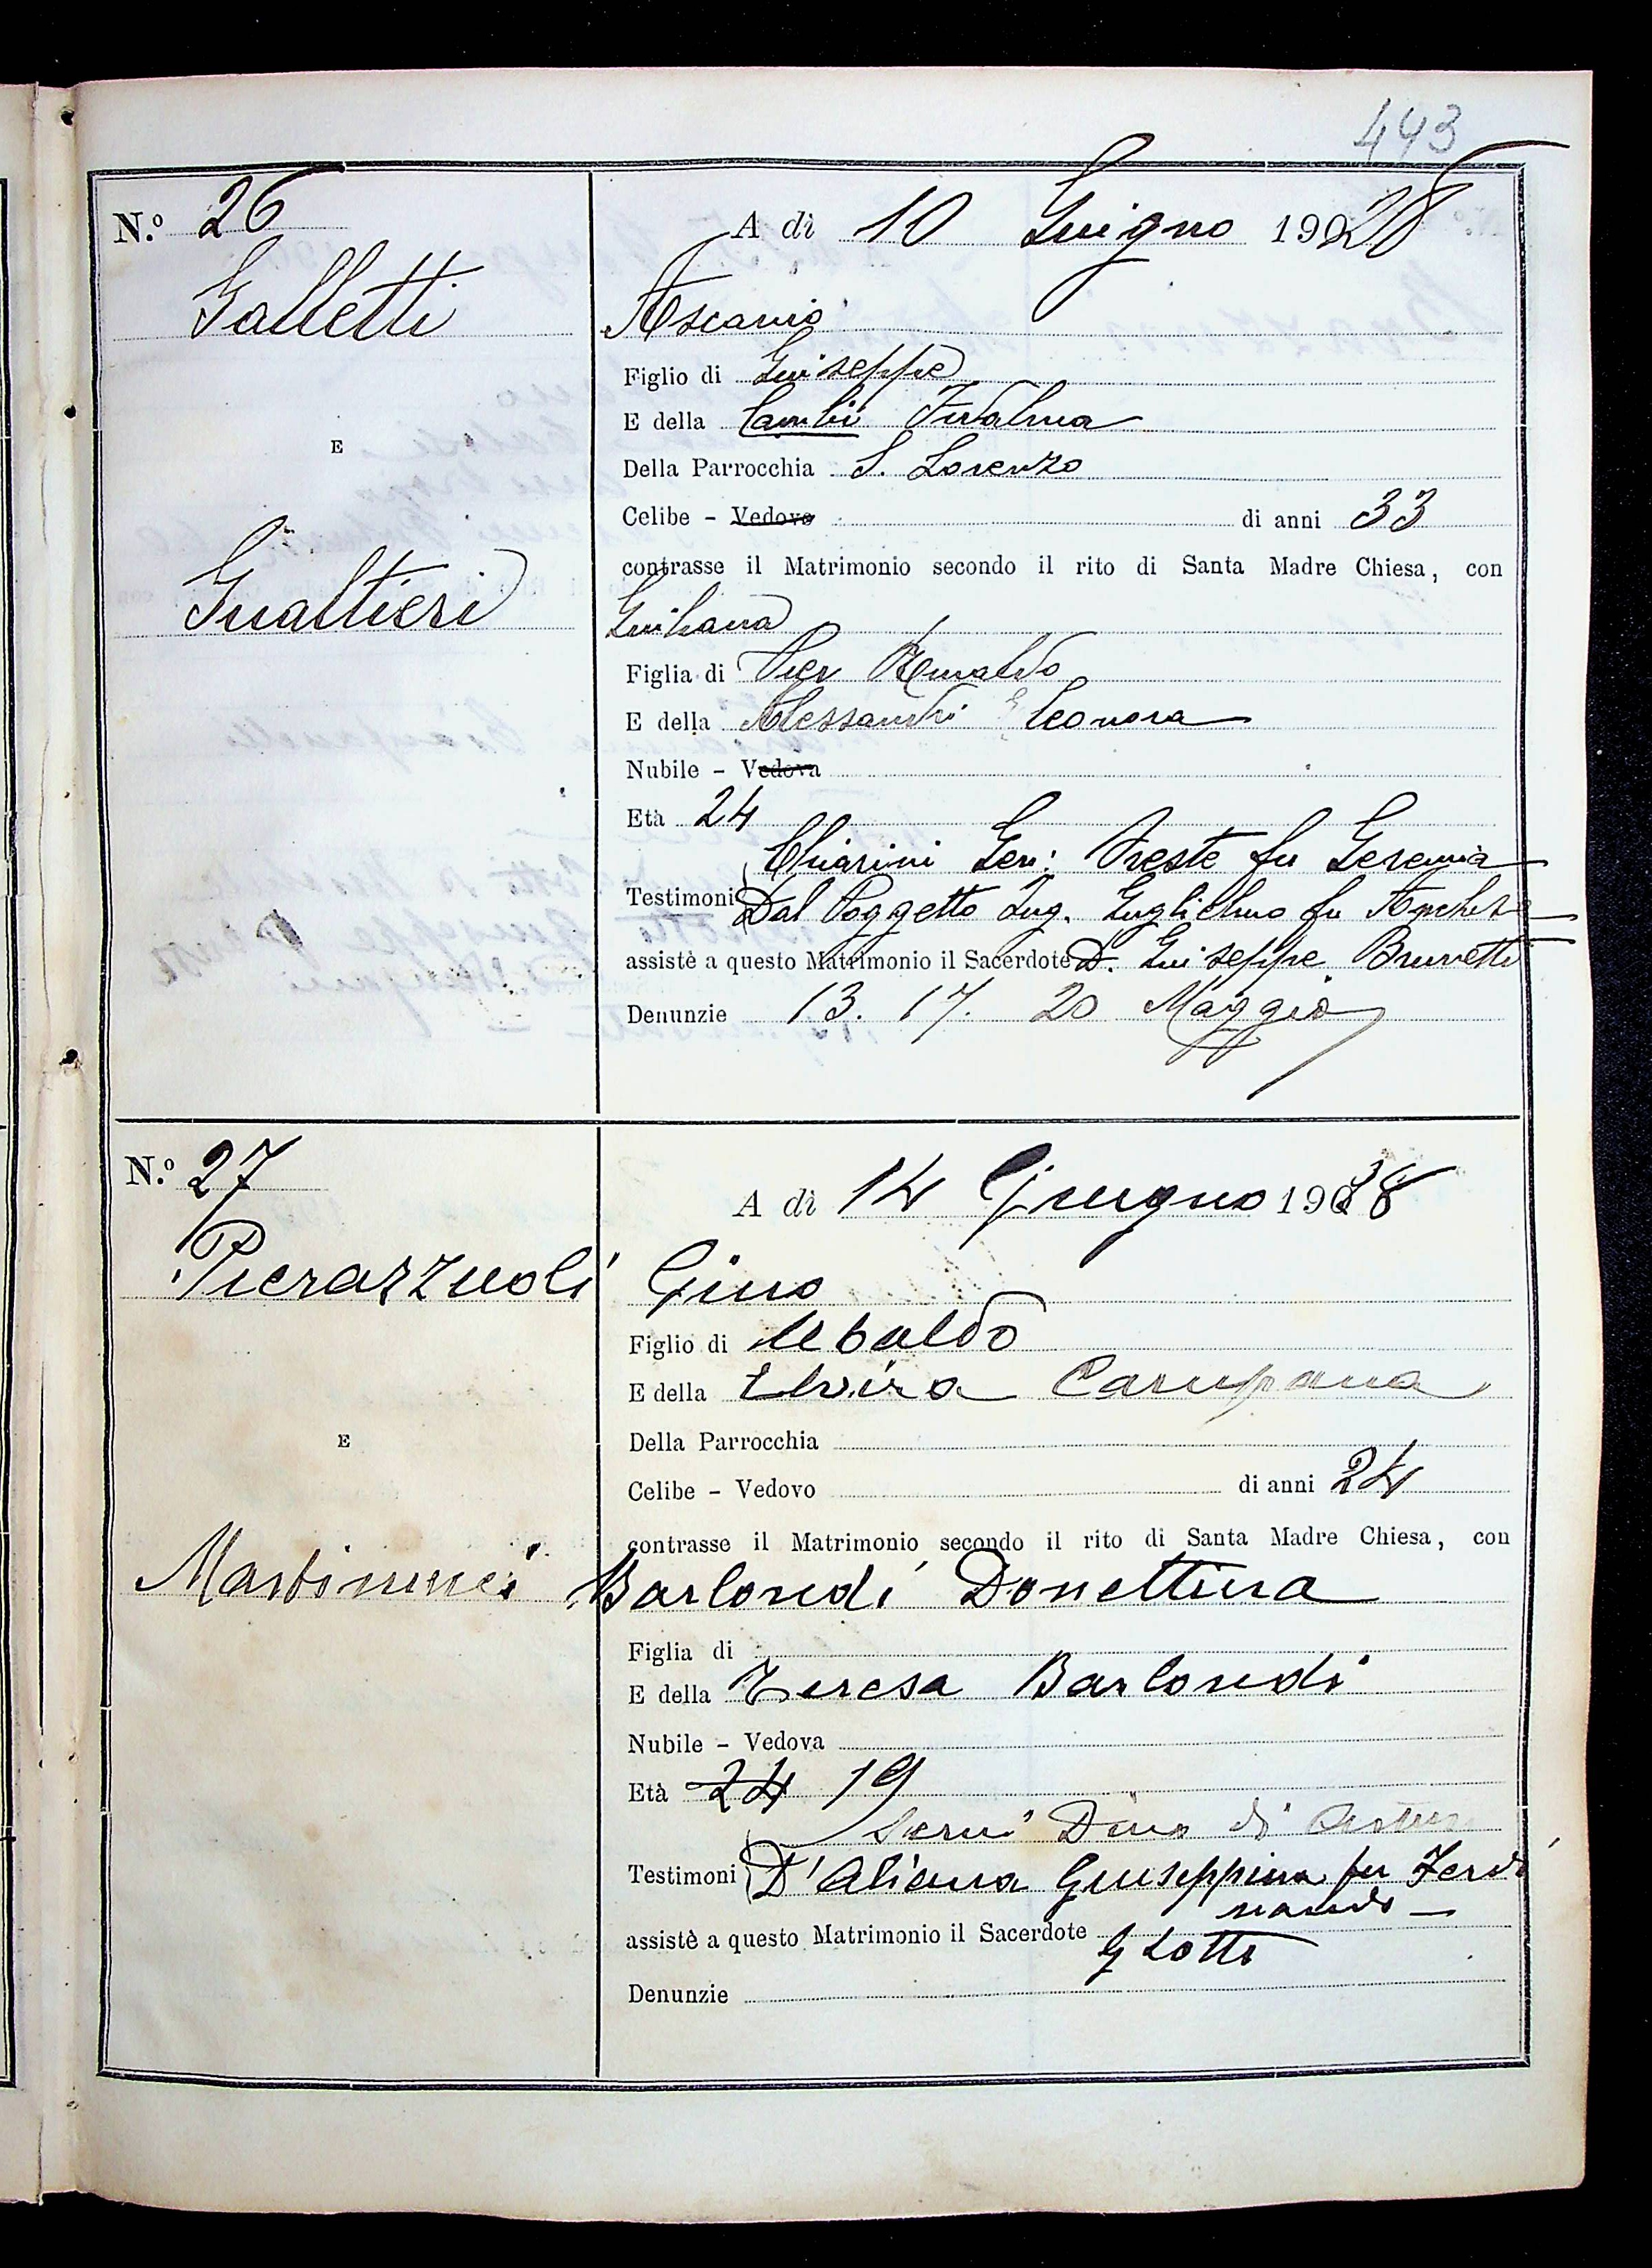 443
N.º 26
A dì 10 Giugno 1928
Galletti
Ascanio
Figlio di Giuseppe
E della Cambi Fidalma
E
Della Parrocchia S. Lorenzo
Celibe - Vedovo di anni 33
contrasse il Matrimonio secondo il rito di Santa Madre Chiesa, con
Gualtieri
Giuliana
Figlia di Pier Rinaldo
E della Alessandri Eleonora
Nubile - Vedova
Età 24
Chiarini Gen: Oreste fu Geremia
Testimoni Dal Poggetto Ing. Guglielmo fu
assistè a questo Matrimonio il Sacerdote D. Giuseppe Brunetti
Denunzie 13. 17. 20 Maggio
N.º 27
A dì 14 Giugno 19 8
Pierazzuoli
Gino
Figlio di Ubaldo
E della Elvira Campana
Della Parrocchia
E
Celibe - Vedovo di anni 24
contrasse il Matrimonio secondo il rito di Santa Madre Chiesa, con
Donettina
Figlia di
E della Teresa
Nubile - Vedova
Età 24 19
Dino di
Testimoni D'Aliana Giuseppina fu Ferdi
nando
assistè a questo Matrimonio il Sacerdote G Lotti
Denunzie